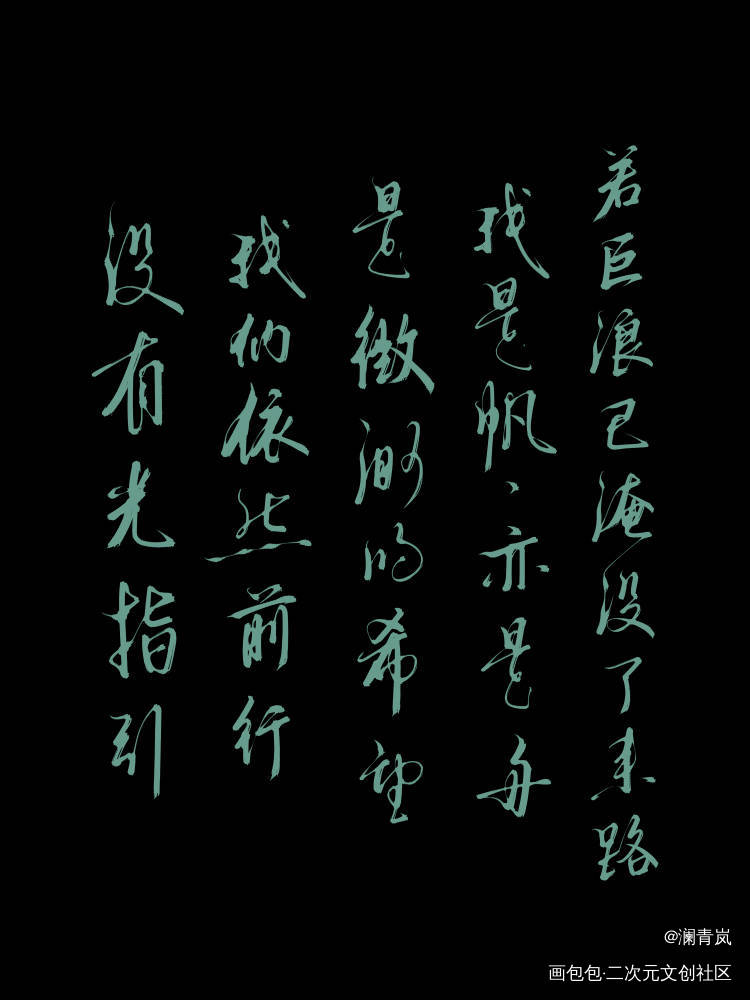 若巨浪已淹没了来路
我是帆、亦是舟
是微渺的希望
我们依然前行
没有光指引
@澜青岚
画包包·二次元文创社区